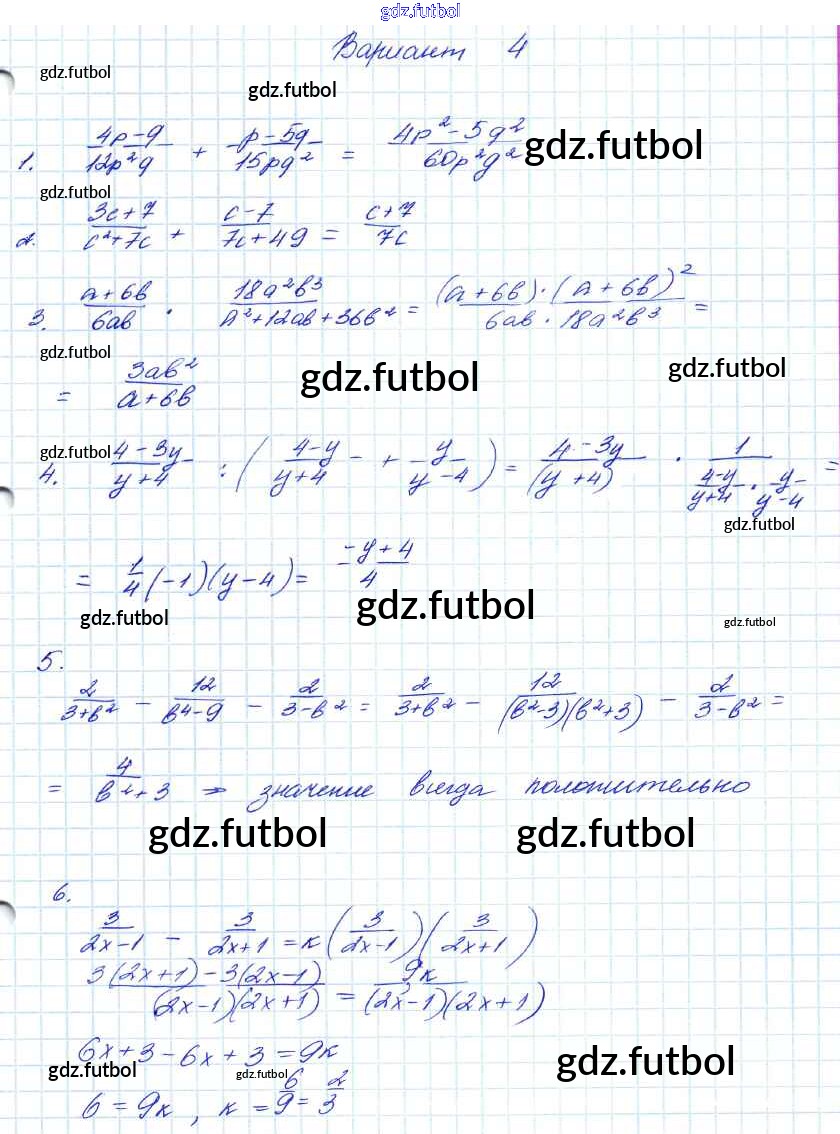 gdz.futbol
Вариант 4
gdz.futbol
gdz.futbol
1. (4p-q)/(12p²q) + (p-5q)/(15pq²) = (4p²-5q²)/(60p²q²) gdz.futbol
gdz.futbol
2. (3c+7)/(c²+7c) + (c-7)/(7c+49) = (c+7)/(7c)
3. (a+6b)/(6ab) · (18a²b³)/(a²+12ab+36b²) = ((a+6b)·(a+6b)²)/(6ab·18a²b³) =
gdz.futbol
= (3ab²)/(a+6b) gdz.futbol gdz.futbol
gdz.futbol
4. (4-3y)/(y+4) : ((4-y)/(y+4) + y/(y-4)) = (4-3y)/(y+4) · 1/((4-y)/(y+4) · y/(y-4)) =
gdz.futbol
= 1/4 (-1)(y-4) = (-y+4)/4
gdz.futbol gdz.futbol gdz.futbol
5.
2/(3+b²) - 12/(b⁴-9) - 2/(3-b²) = 2/(3+b²) - 12/((b²-3)(b²+3)) - 2/(3-b²) =
= 4/(b²+3) => значение всегда положительно
gdz.futbol gdz.futbol
6.
3/(2x-1) - 3/(2x+1) = к(3/(2x-1))(3/(2x+1))
(3(2x+1)-3(2x-1))/((2x-1)(2x+1)) = 9к/((2x-1)(2x+1))
6x+3-6x+3=9к
gdz.futbol gdz.futbol gdz.futbol
6=9к, к=6/9=2/3